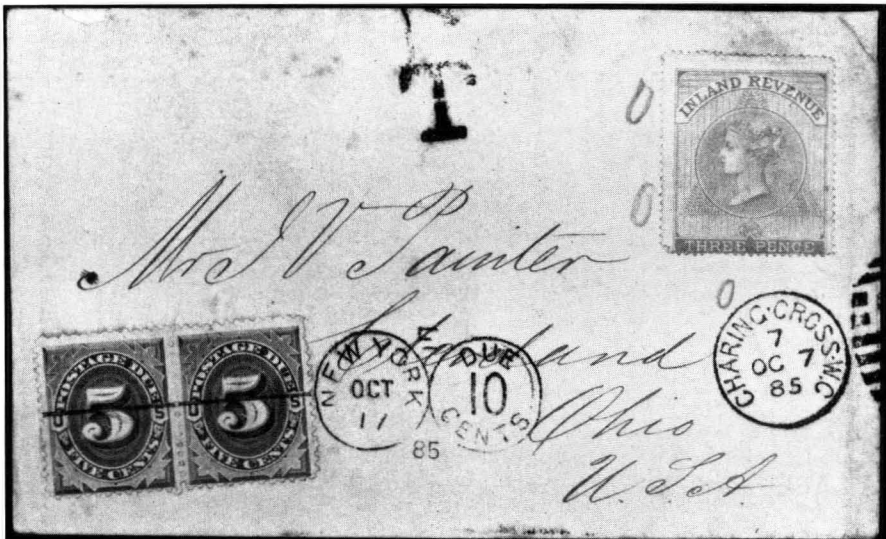 T
INLAND REVENUE
THREE PENCE
0
0
0
Mr J V Painter
Cleveland
Ohio
U.S.A
POSTAGE DUE
5
FIVE CENTS
U S
POSTAGE DUE
5
FIVE CENTS
U S
NEW YORK
OCT
11
85
DUE
10
CENTS
CHARING·CROSS·W.C
7
OC 7
85